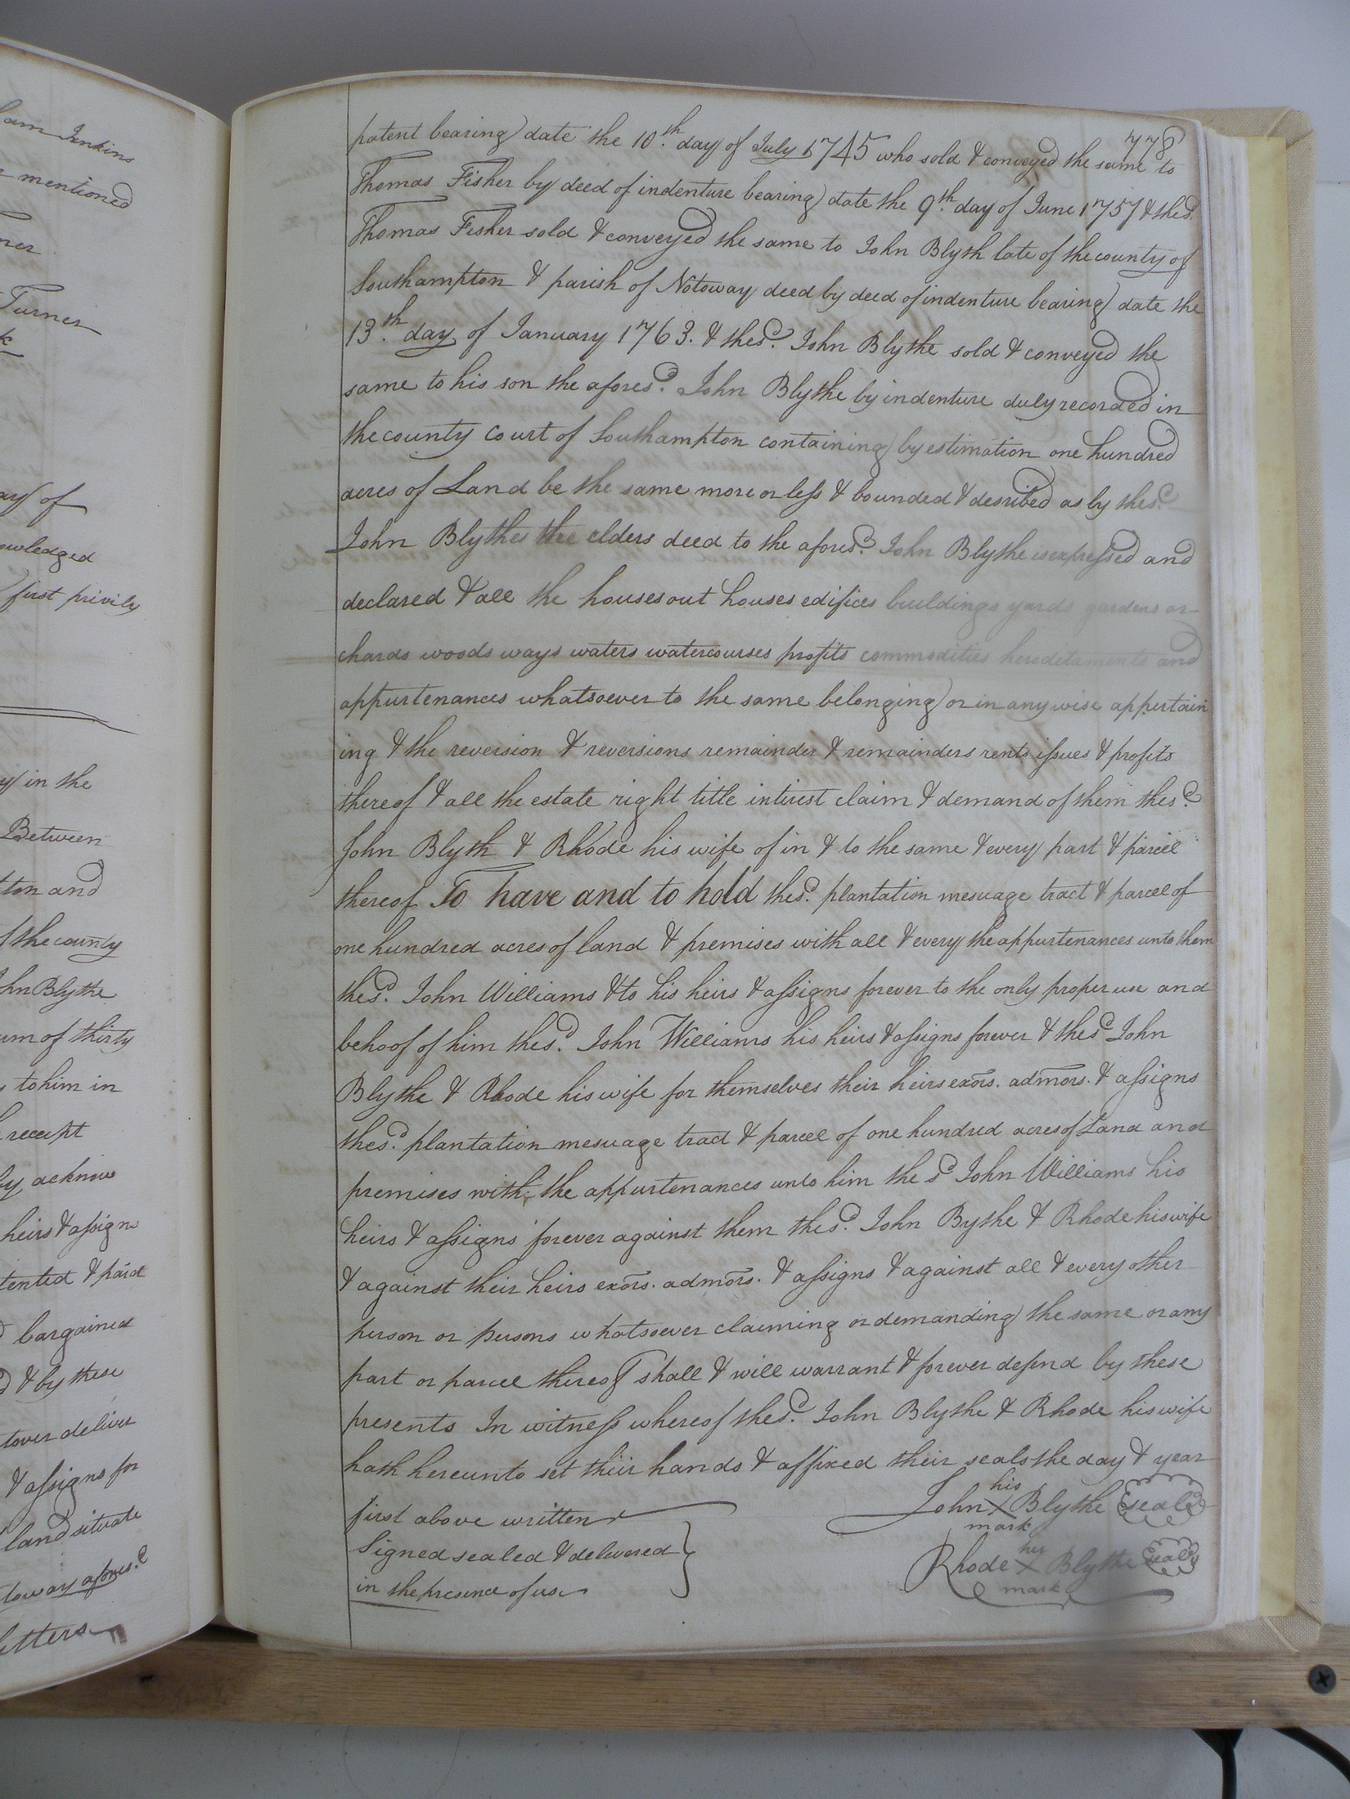 am Jenkins
mentioned
Turner
ay of
owledged
first privily
y in the
Between
ton and
f the county
hn Blythe
um of thirty
s to him in
receipt
by acknow
heirs & assign
tented & paid
bargained
d & by these
tover deliver
& assigns for
land situate
toway afores.d
letters
778
patent bearing date the 10.th day of July 1745 who sold & conveyed the same to
Thomas Fisher by deed of indenture bearing date the 9.th day of June 1757 & the s.d
Thomas Fisher sold & conveyed the same to John Blyth late of the county of
Southampton & parish of Notoway deed by deed of indenture bearing date the
13.th day of January 1763. & the s.d John Blythe sold & conveyed the
same to his son the afores.d John Blythe by indenture duly recorded in
the county court of Southampton containing by estimation one hundred
acres of Land be the same more or less & bounded & desribed as by the s.d
John Blythes the elders deed to the afores.d John Blythe is expressed and
declared & all the houses out houses edifices buildings yards gardens or-
chards woods ways waters watercourses profits commodities heroditaments and
appurtenances whatsoever to the same belonging or in any wise appertain
ing & the reversion & reversions remainder & remainders rents issues & profits
thereof & all the estate right title interest claim & demand of them the s.d
John Blyth & Rhode his wife of in & to the same & every part & parcel
thereof To have and to hold the s.d plantation mesuage tract & parcel of
one hundred acres of land & premises with all & every the appurtenances unto them
the s.d John Williams & to his heirs & assigns forever to the only proper use and
behoof of him the s.d John Williams his heirs & assigns forever & the s.d John
Blythe & Rhode his wife for themselves their heirs exors. admors. & assigns
the s.d plantation mesuage tract & parcel of one hundred acres of Land and
premises with the appurtenances unto him the s.d John Williams his
heirs & assigns forever against them the s.d John Bythe & Rhode his wife
& against their heirs exors. admors. & assigns & against all & every other
person or persons whatsoever claiming or demanding the same or any
part or parcel thereof shall & will warrant & forever defend by these
presents In witness whereof the s.d John Blythe & Rhode his wife
hath hereunto set their hands & affixed their seals the day & year
first above written
his
John X Blythe seal
mark
Signed sealed & delivered
in the presence of us
her
Rhode X Blythe seal
mark